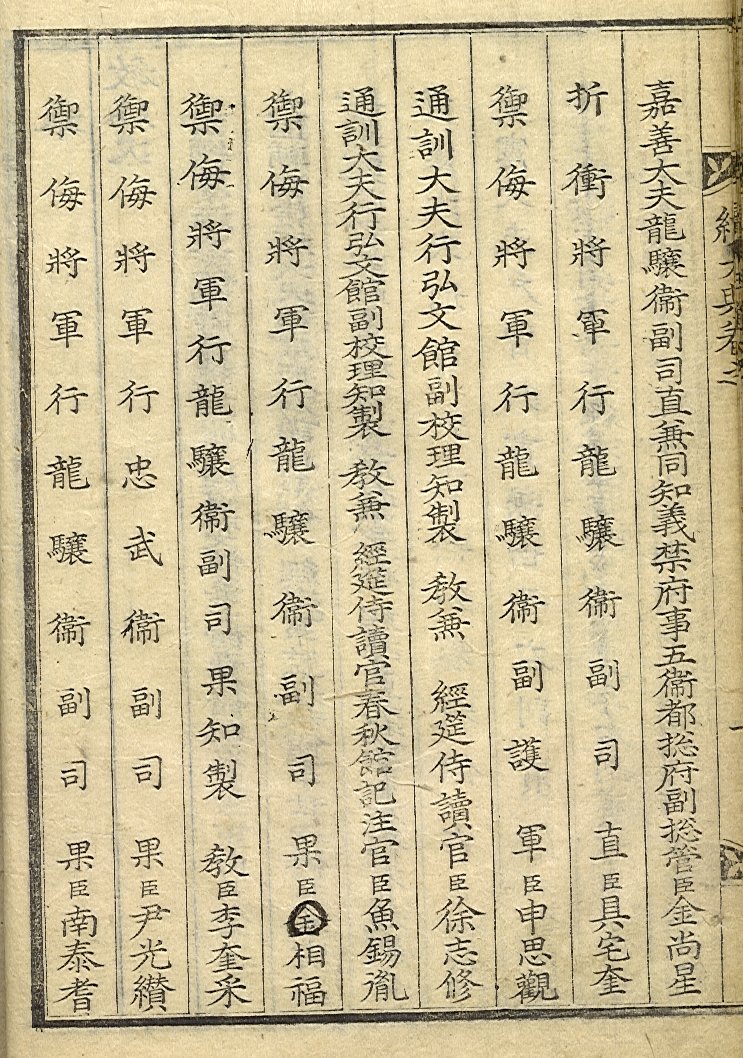 續大典卷之
嘉善大夫龍驤衛副司直兼同知義禁府事五衛都揔府副揔管臣金尚星
折衝將軍行龍驤衛副司直臣具宅奎
禦侮將軍行龍驤衛副護軍臣申思觀
通訓大夫行弘文館副校理知製 敎兼 經筵侍讀官臣徐志修
通訓大夫行弘文館副校理知製 敎兼 經筵侍讀官春秋館記注官臣魚錫胤
禦侮將軍行龍驤衛副司果臣金相福
禦侮將軍行龍驤衛副司果知製 敎臣李奎采
禦侮將軍行忠武衛副司果臣尹光纉
禦侮將軍行龍驤衛副司果臣南泰耆